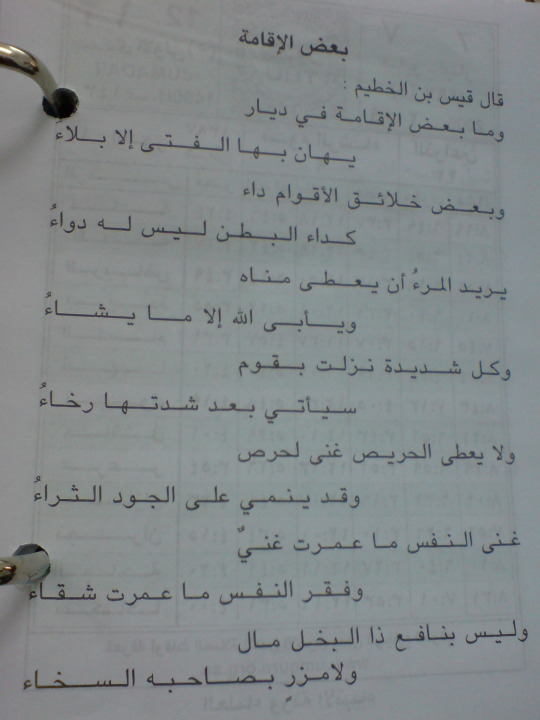 بعض الإقامة
قال قيس بن الخطيم :
وما بعض الإقامة في ديار
يهان بها الفتى إلا بلاءَ
وبعض خلائق الأقوام داء
كداء البطن ليس له دواءُ
يريد المرءُ أن يعطى مناه
ويأبى الله إلا ما يشاءُ
وكل شديدة نزلت بقوم
سيأتي بعد شدتها رخاءُ
ولا يعطى الحريص غنى لحرص
وقد ينمي على الجود الثراءُ
غنى النفس ما عمرت غنيٌ
وفقر النفس ما عمرت شقاءُ
وليس بنافع ذا البخل مال
ولامزر بصاحبه السخاء